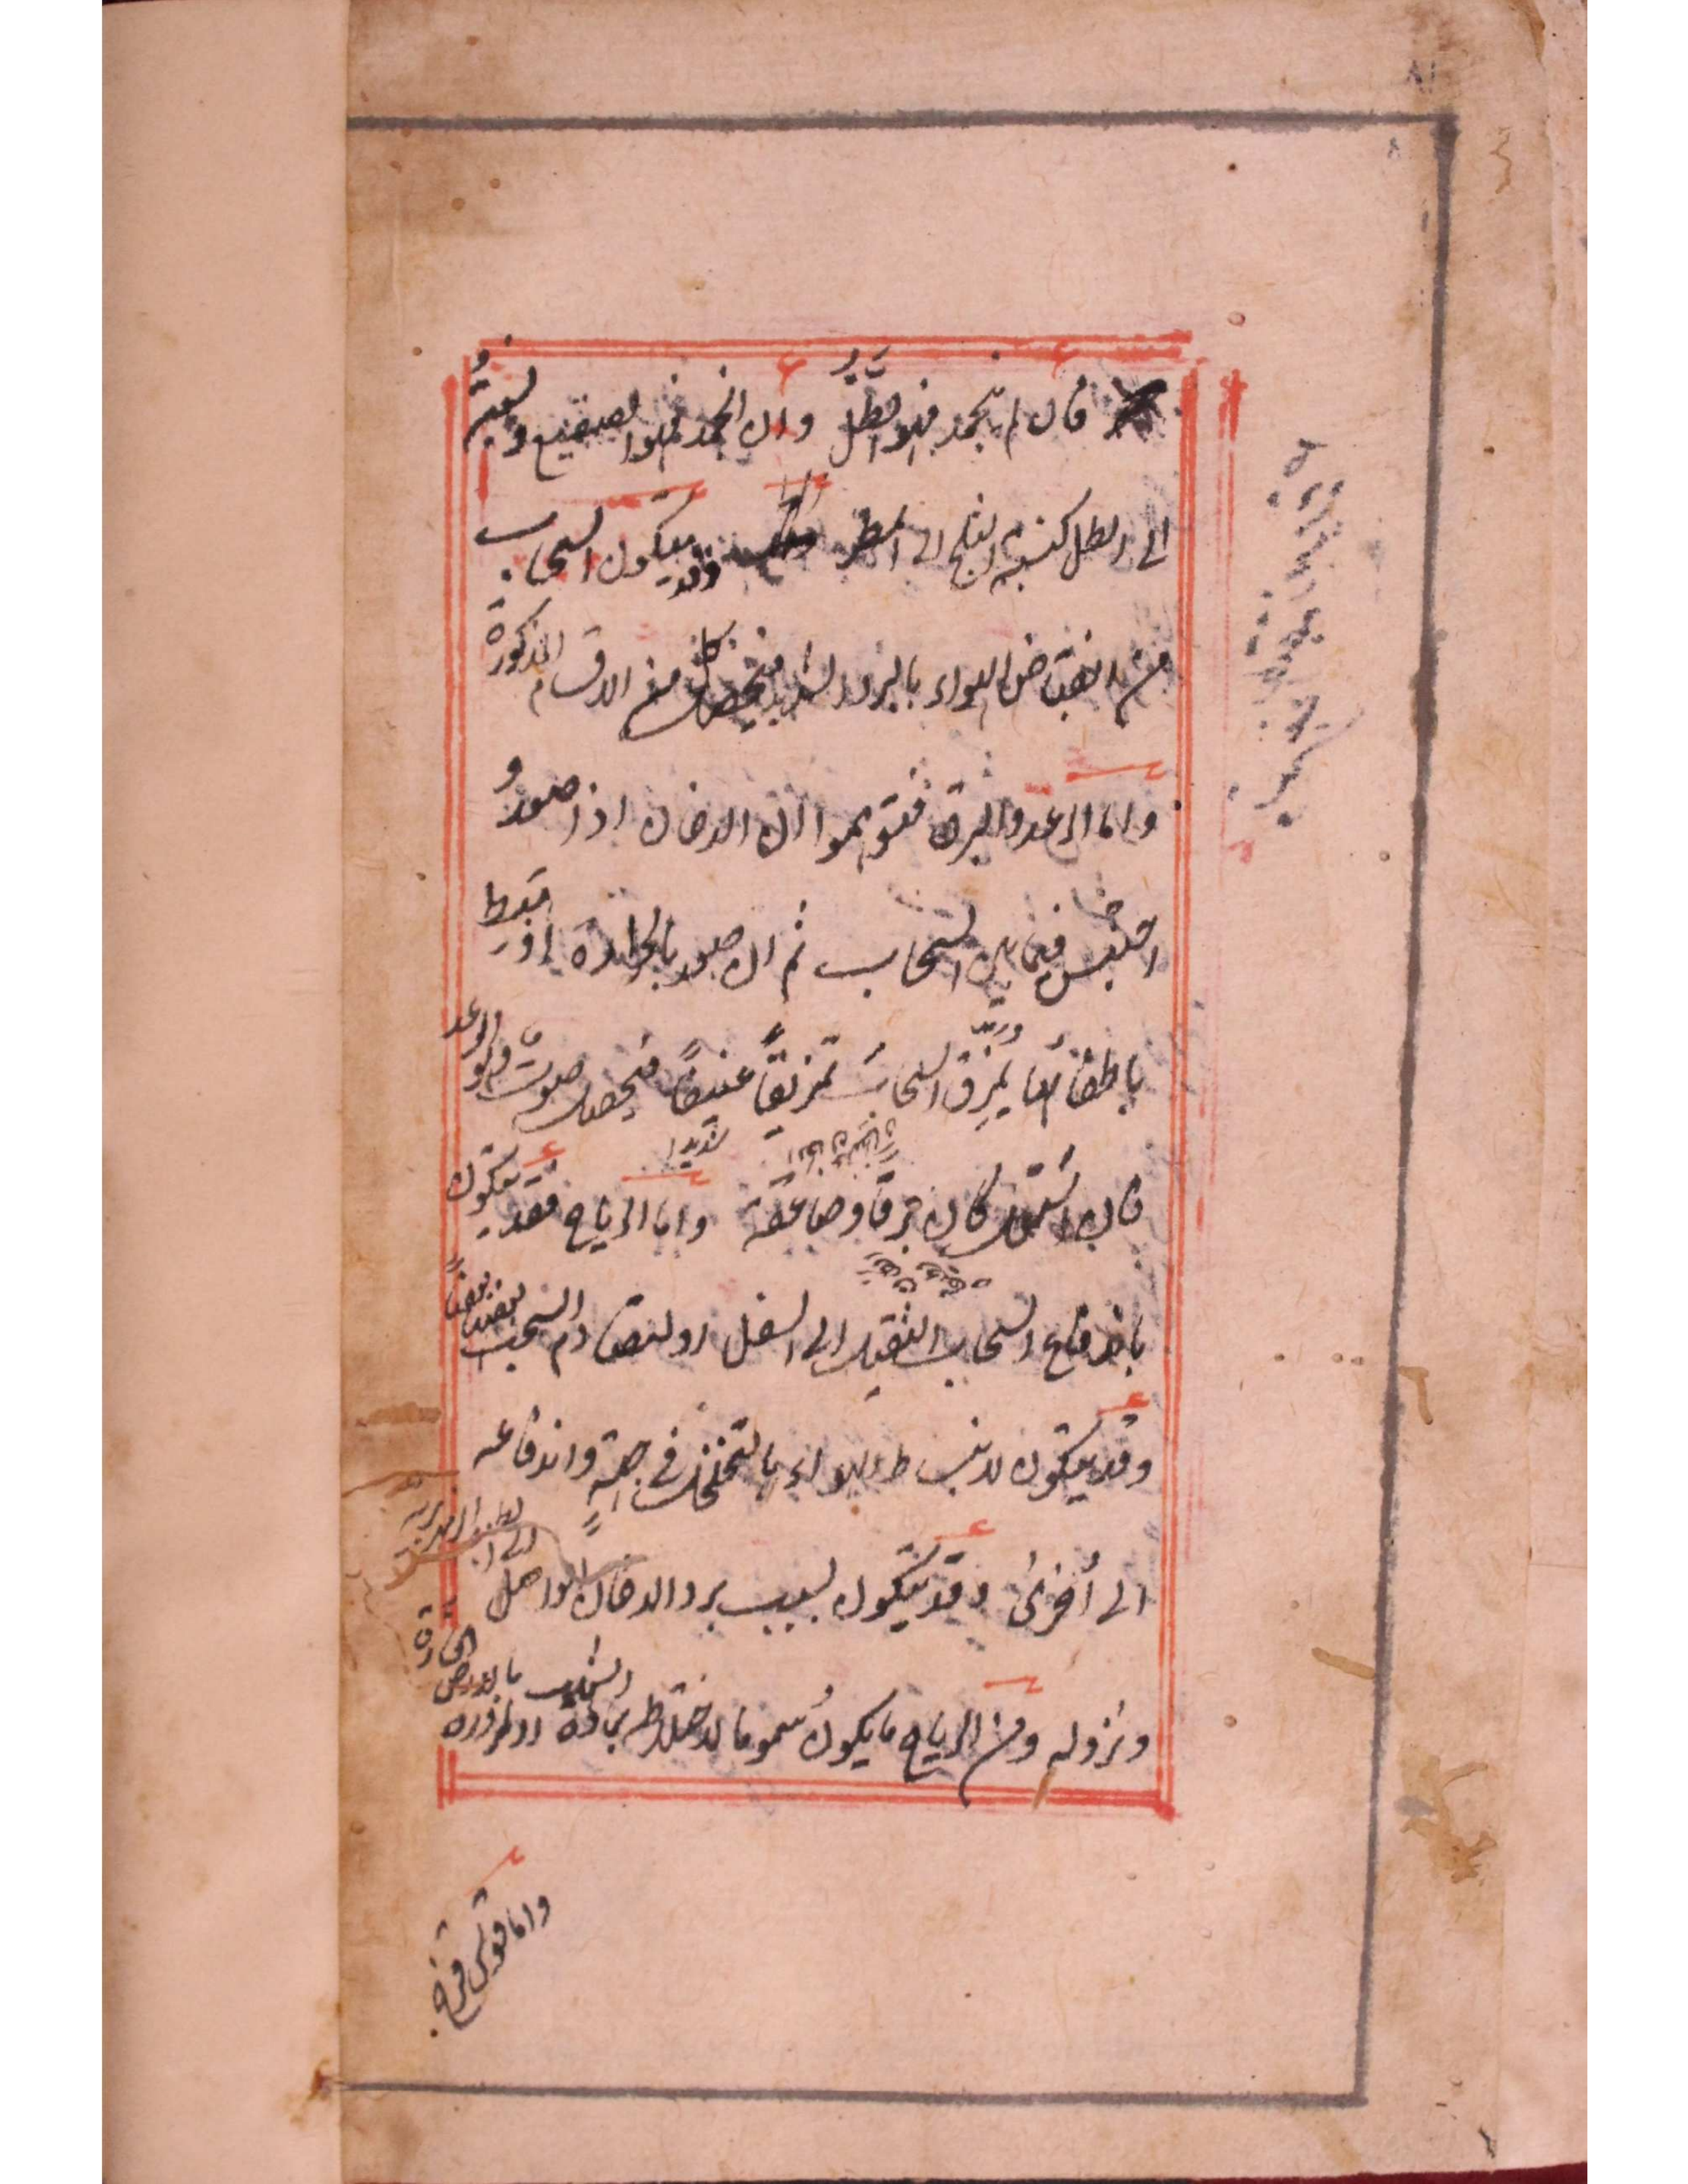 فان لم ينجمد فهو الطَّلُّ وان انجمد فهو الصقيع ونسبته
الى الطل كنسبة الثلج الى المطر وقد يتكون السحاب
من انقباض الهواء بالبرد الشديد فيحصل كل من الاقسام المذكورة
واما الرعد والبرق فتوهموا ان الدخان اذا صعد و
احتبس فيما بين السحاب ثم ان صعد بالحرارة او هبط
يمزق السحاب تمزيقاً عنيفاً فيحصل صوت وهو الرعد
شديدا
فان اشتعل كان برقا وصاعقة واما الرياح فقد يتكون
باندفاع السحاب الثقيل الى السفل او لتصادم السحب بعضها بعضاً
وقد يتكون لانبساط الهواء بالتخلخل في جهةٍ واندفاعه
الى أخرى وقد يتكون بسبب برد الدخان الواصل الى
ونزوله ومن الرياح ما يكون سموما لاختلاطه بمادة الشهب او لمروره بالارض الحارة
واما قوس قزح